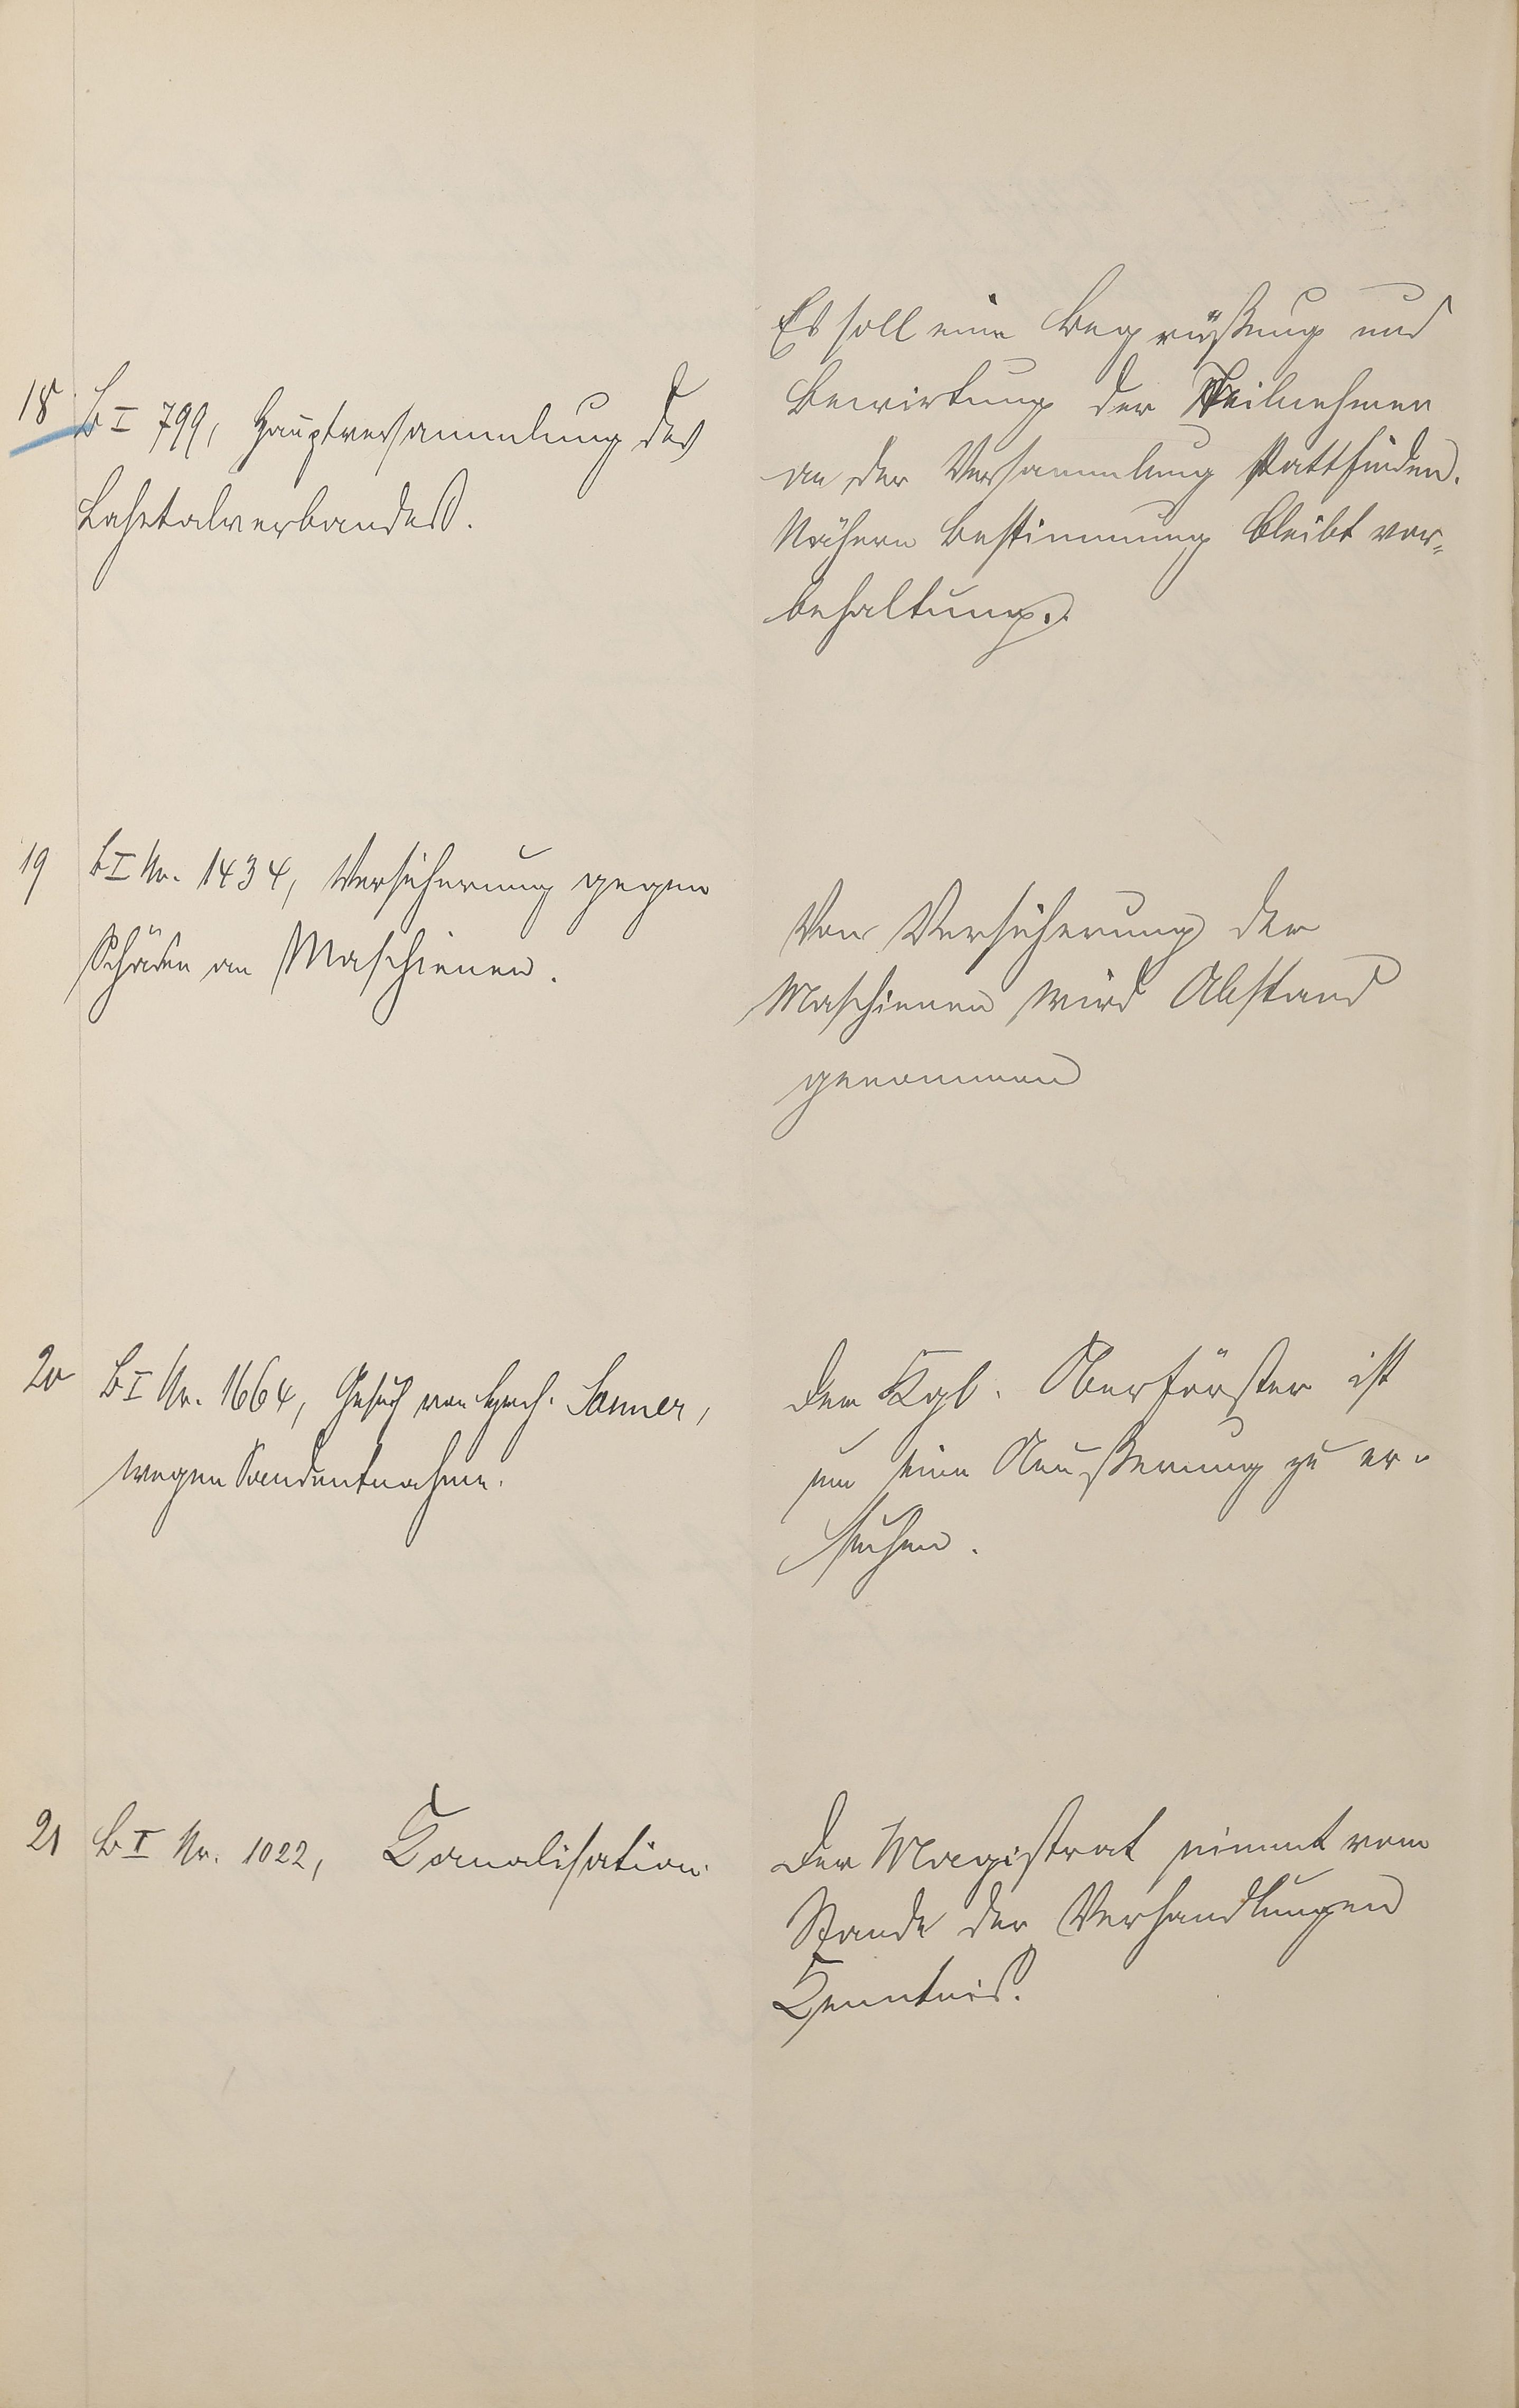 18. B I 799, Hauptversammlung des
Lahntalverbandes.
Es soll eine Begrüßung und
Bewirtung der Teilnehmer
an der Versammlung stattfinden.
Nähere Bestimmung bleibt vor-
behalten.
19 B I Nr. 1434, Versicherung gegen
Schäden an Maschienen.
Von Versicherung der
Maschienen wird Abstand
genommen
20 B I Nr. 1664, Gesuch von Sanner,
wegen Sandentnahme.
Der Kgl. Oberförster ist
um eine Aeußerung zu er-
suchen.
21 B I Nr. 1022, Kanalisation.
Der Magistrat nimmt vom
Stande der Verhandlungen
Kenntnis.